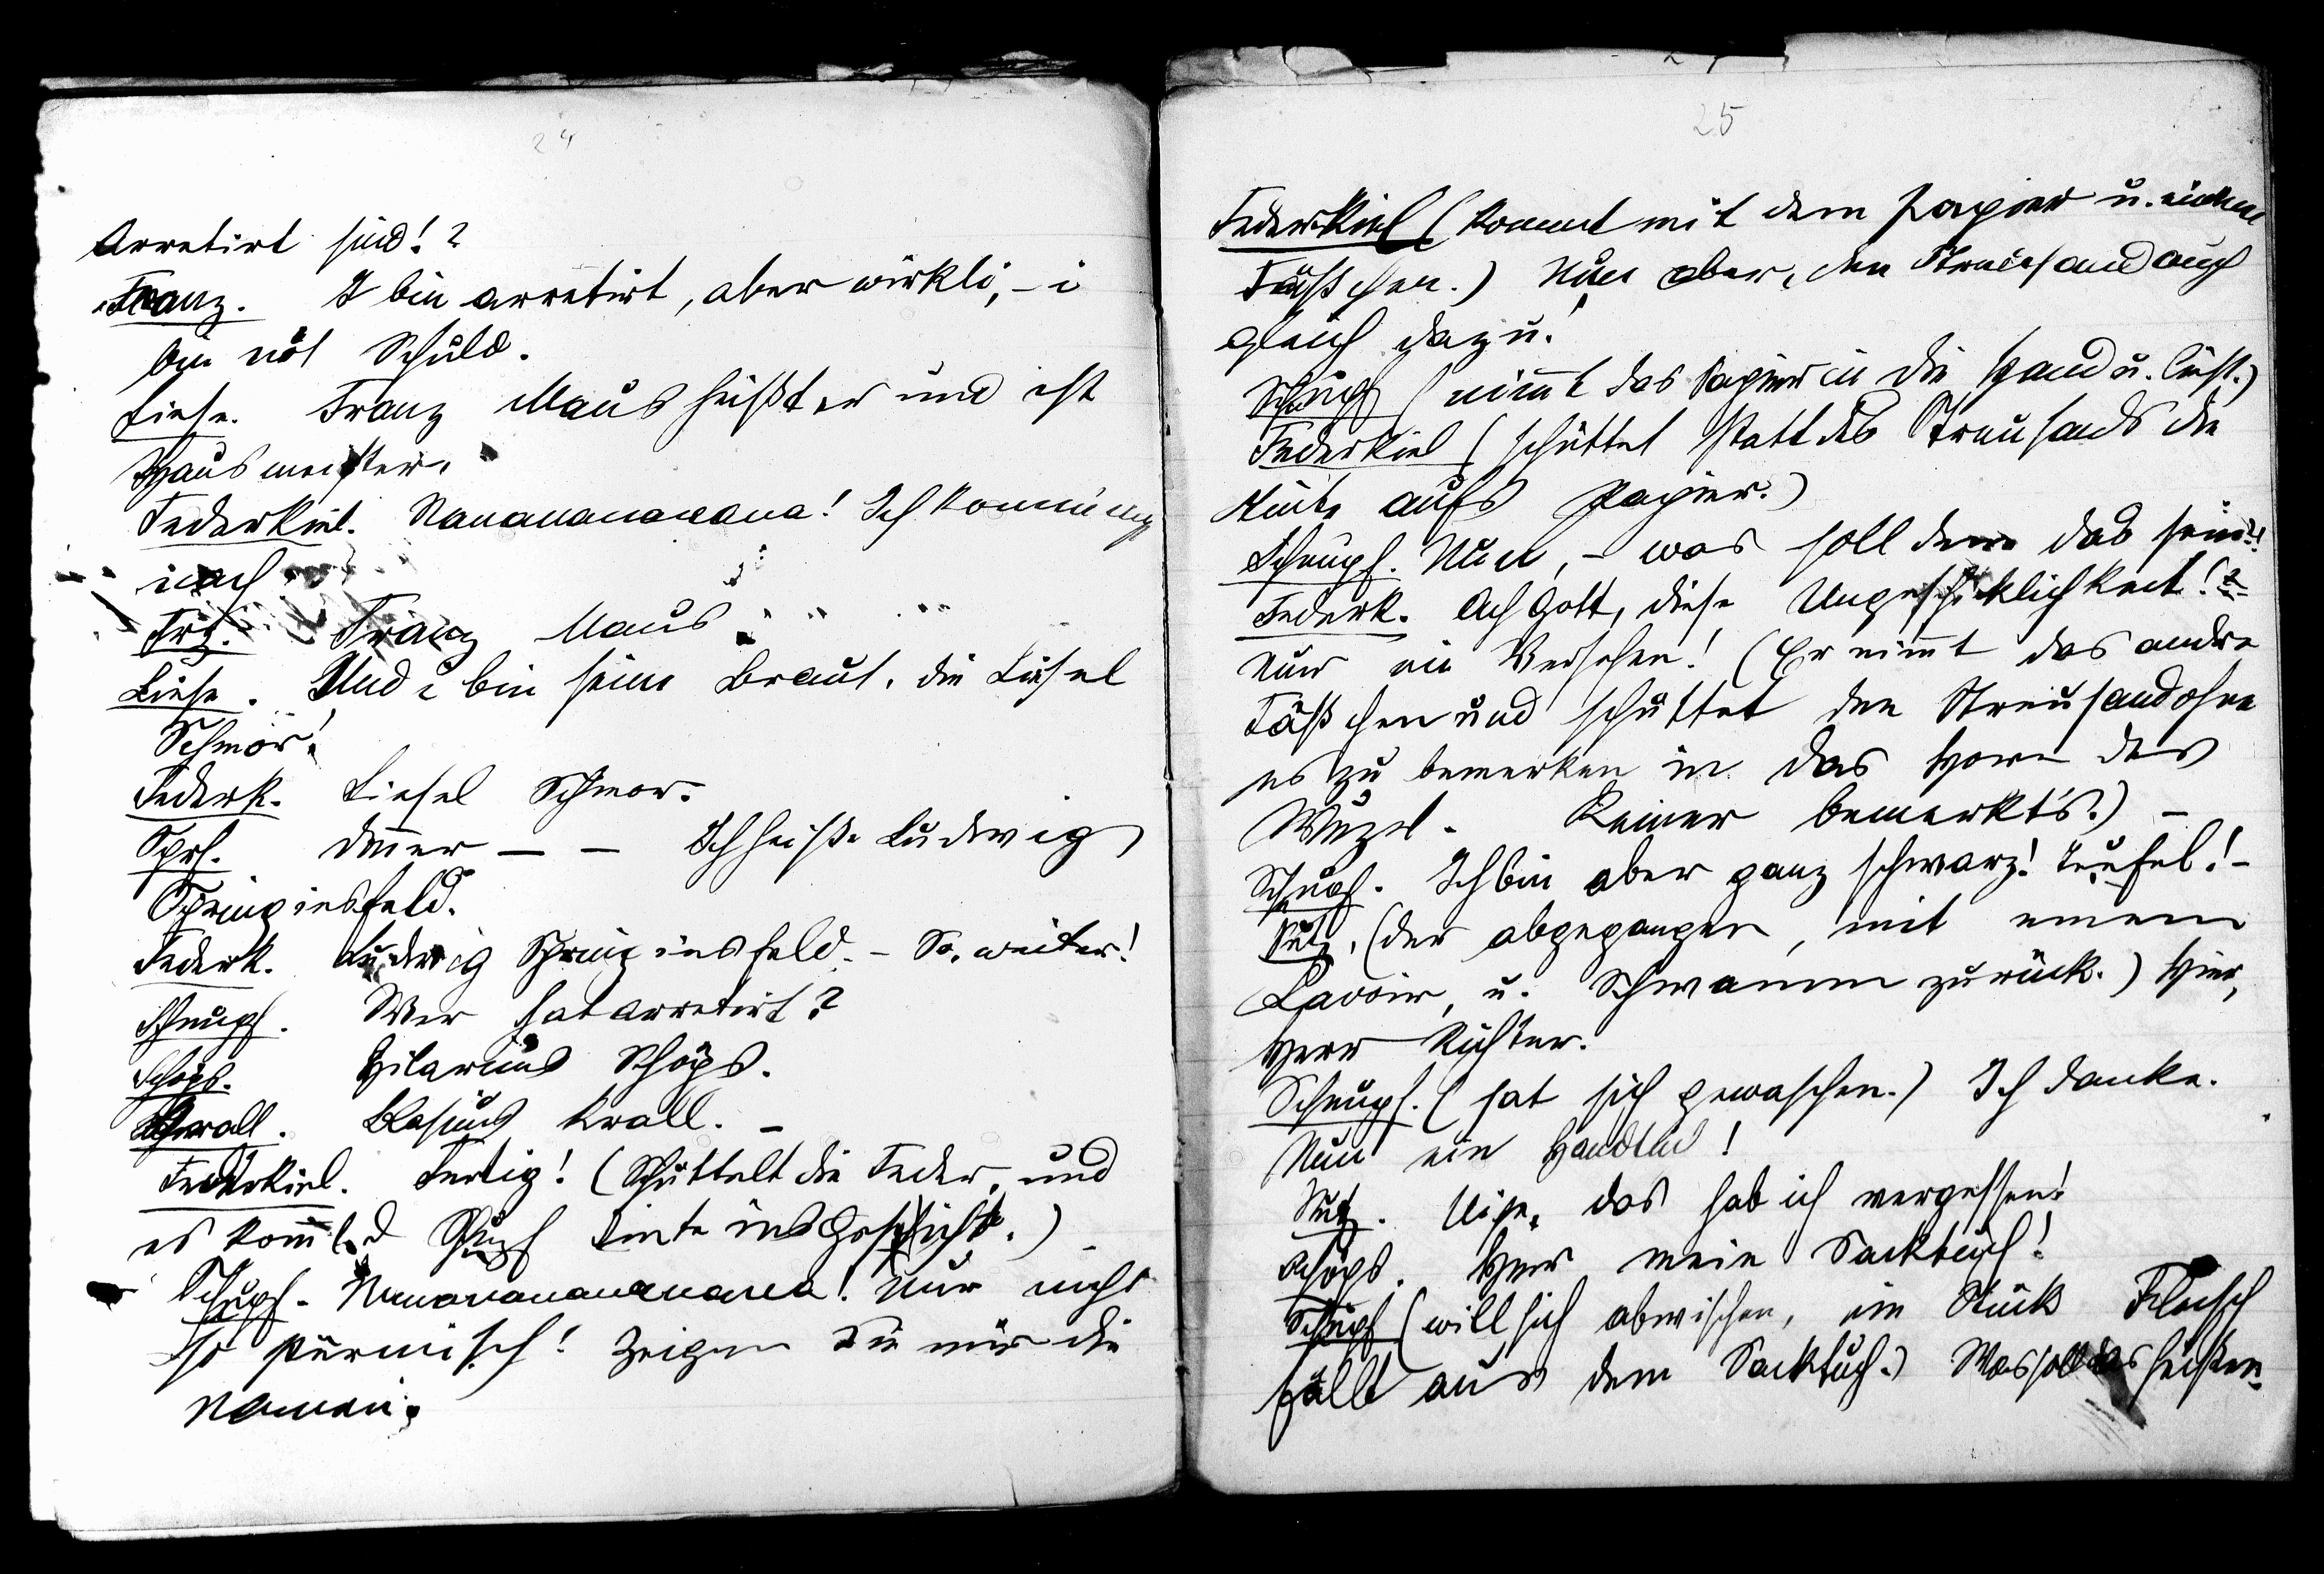 24
Arretirt sind!?
Franz. I bin arretirt, aber wirkli, – i
bin nöt Schuld.
Liese. Franz Maus heißt er und ist
Hausmeister.
Federkiel. Nananananana! Ich komm ni
nach
Frz. Franz Maus
Liese. Und i bin seine Braut, die Liesel
Schmor!
Federk. Liesel Schmor.
Sprf. Dann er – – Ich heiße Ludwig
Springinsfeld.
Federk. Ludwig Springinsfeld. – So, weiter!
Schnupf. Wer hat arretirt?
Schöps. Hilarius Schöps.
Krall. Blasius Krall. –
Federkiel. Fertig! (Schüttelt die Feder, und
es kommt d Schnupf Tinte ins Gesicht.)
Schnupf. Nananananananana! Nur nicht
so stürmisch! Zeigen Sie mir die
Namen.
25
Federkiel (kommt mit dem Papier u. einem
Fäßchen.) Nun aber, den Streusand auch
gleich dazu!
Schnupf (nimmt das Papier in die Hand u. liest.)
Federkiel (schüttet statt des Streusands die
Tinte aufs Papier.)
Schnupf. Nun, – was soll denn das sein?!
Federk. Ach Gott, diese Ungeschicklichkeit!?
nur ein Versehen! (Er nimmt das andre
Fäßchen und schüttet den Streusand ohne
es zu bemerken in das Horn des
Wuzel. Keiner bemerkt's.) –
Schnupf. Ich bin aber ganz schwarz! Teufel! –
Putz. (der abgegangen, mit einem
Lavoir, u. Schwamm zurück.) Hier,
Herr Richter.
Schnupf. (hat sich gewaschen.) Ich danke.
Nun ein Handtuch!
Putz. Uije, das hab ich vergessen!
Schöps. Hier mein Sacktuch!
Schnupf (will sich abwischen, ein Stück Fleisch
fällt aus dem Sacktuch.) Was soll das heißen.